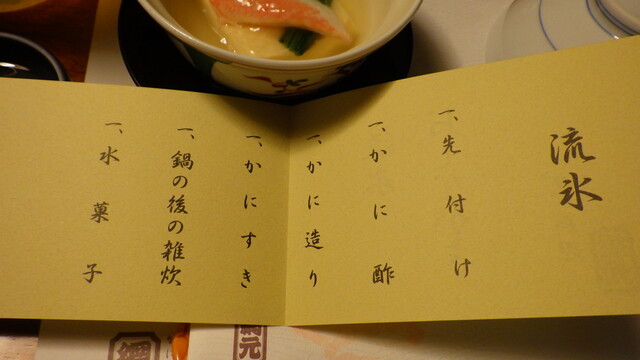 流氷
一、先付け
一、かに酢
一、かに造り
一、かにすき
一、鍋の後の雑炊
一、水菓子
網元
網